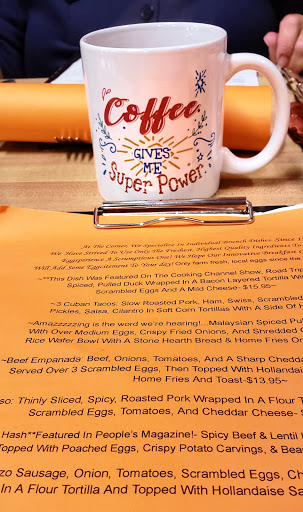 Coffee
GIVES
ME
Super Power
At The Corner, We Specialize In Individual Brunch Dishes. Since 1
We Have Strived To Use Only The Freshest, Highest Quality Ingredients To
Eggsperience A Scrumptious One! We Hope Our Innovative Breakfast C
Will Add Some Eggcitement To Your day! Only farm fresh, local eggs since the
~**This Dish Was Featured On The Cooking Channel Show, Road Trip
Spiced, Pulled Duck Wrapped In A Bacon Layered Tortilla Wit
Scrambled Eggs And A Mild Cheese- $15.95~
~3 Cuban Tacos: Slow Roasted Pork, Ham, Swiss, Scrambled
Pickles, Salsa, Cilantro In Soft Corn Tortillas With A Side Of
~Amazzzzzing is the word we're hearing!...Malaysian Spiced Pu
With Over Medium Eggs, Crispy Fried Onions, And Shredded
Rice Wafer Bowl With A Stone Hearth Bread & Home Fries On
~Beef Empanada: Beef, Onions, Tomatoes, And A Sharp Chedda
Served Over 3 Scrambled Eggs, Then Topped With Hollandai
Home Fries And Toast-$13.95~
so: Thinly Sliced, Spicy, Roasted Pork Wrapped In A Flour T
Scrambled Eggs, Tomatoes, And Cheddar Cheese- $
Hash**Featured In People's Magazine!- Spicy Beef & Lentil
Topped With Poached Eggs, Crispy Potato Carvings, & Bea
zo Sausage, Onion, Tomatoes, Scrambled Eggs, Ch
In A Flour Tortilla And Topped With Hollandaise Sa